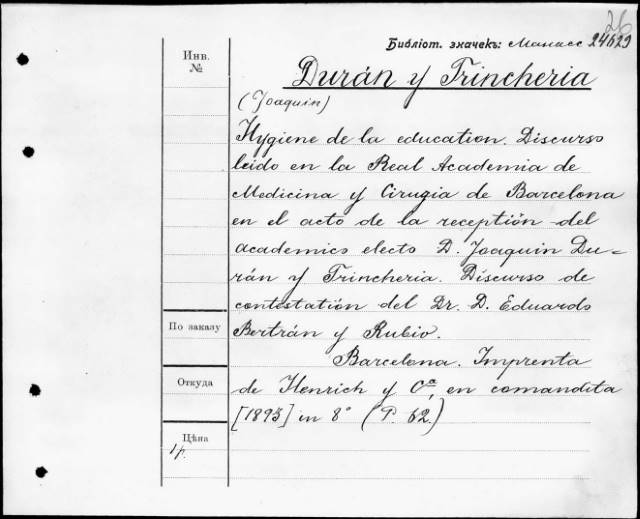 26
Библіот. значекъ: Манасс 24629
Инв.
№
Durán y Trincheria
(Joaquin)
Hygiene de la education. Discurso
leido en la Real Academia de
Medicina y Cirugia de Barcelona
en el acto de la receptión del
academics electo D. Joaquin Du-
rán y Trincheria. Discurso de
contestatión del Dr. D. Eduardo
По заказу
Bertrán y Rubio.
Barcelona. Imprenta
Откуда
de Henrich y Cª, en comandita
[1893] in 8° (P. 62.)
Цѣна
1 р.